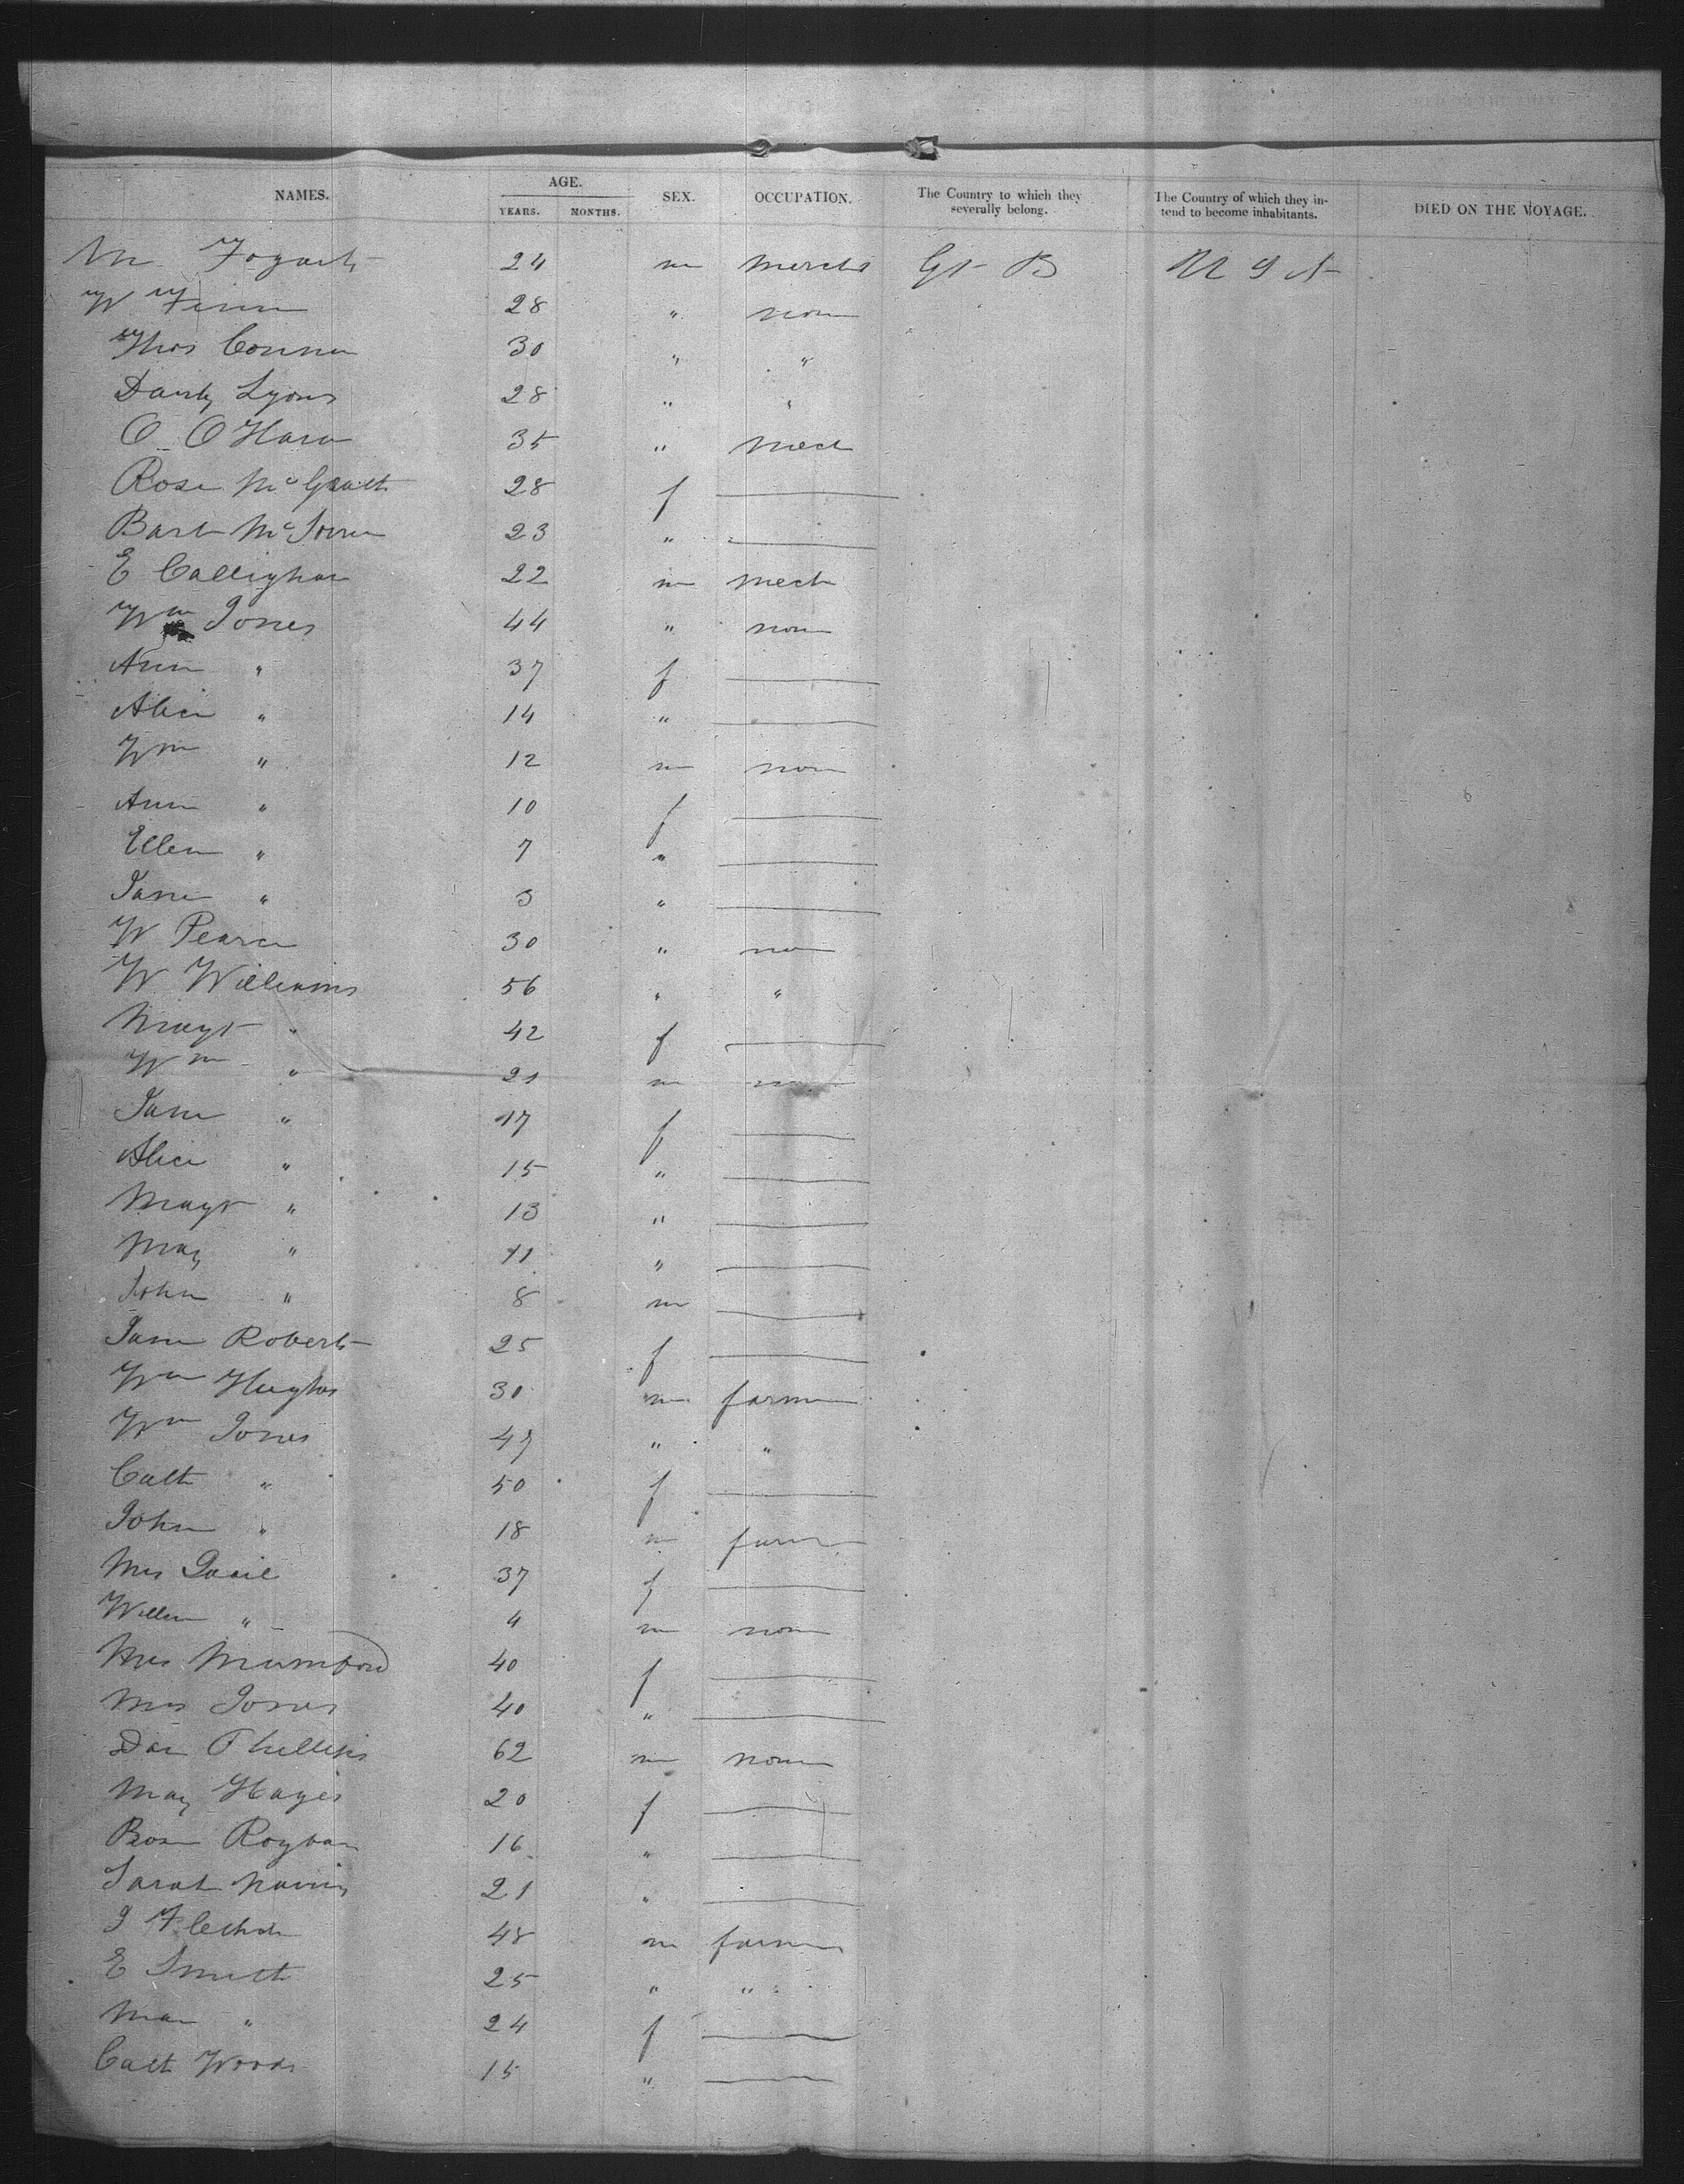 NAMES. AGE. SEX. OCCUPATION. The Country to which they severally belong. The Country of which they intend to become inhabitants. DIED ON THE VOYAGE.
YEARS. MONTHS.
M Fogarty 24 m Merch Gt B U S A
W Finn 28 " non
Thos Connor 30 " "
Danl Lyons 28 " "
O O'Hara 35 " Mech
Rose McGrath 28 f
23 "
E Callighan 22 m Mech
Wm Jones 44 " non
Ann " 37 f
Alice " 14 "
Wm " 12 m non
Ann " 10 f
Ellen " 7 "
Jane " 3 "
W Pearce 30 " non
W Williams 56 " "
Magt " 42 f
Wm " 21 m non
Jane " 17 f
Alice " 15 "
Magt " 13 "
May " 11 "
John " 8 m
Jane Roberts 25 f
Wm Hughes 30 m farmer
Wm Jones 47 " "
Cath " 50 f
John " 18 m farm
Mrs 37 f
Willm " 4 m non
Mrs Mumford 40 f
Mrs Jones 40 "
Dan Phillips 62 m non
May Hayes 20 f
Rose 16 "
Sarah 21 "
J Fletcher 48 m farmer
E Smith 25 " "
Mar " 24 f
Cath Woods 15 "